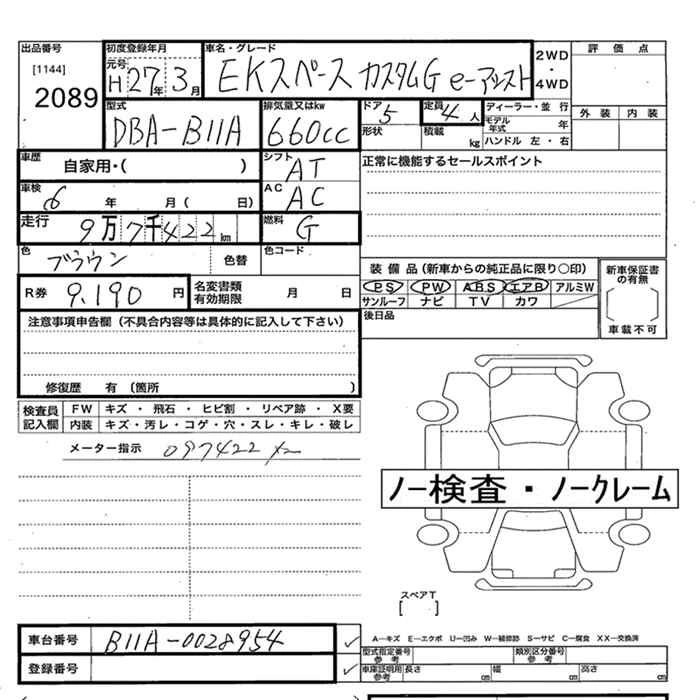 出品番号 初度登録年月 車名・グレード 2WD・4WD 評価点
[1144] 元号 H27年3月 EKスペース カスタムG e-アシスト
2089 外装 内装
型式 排気量又はkw ドア 5 定員 4人 ディーラー・並行
DBA-B11A 660cc モデル年式 年
形状 積載 kg ハンドル 左・右
車歴 自家用・( ) シフト AT 正常に機能するセールスポイント
車検 6年 月( 日) AC AC
走行 9万7千422km 燃料 G
色 ブラウン 色替 色コード
装備品(新車からの純正品に限り〇印) 新車保証書の有無
R券 9,190円 名変書類有効期限 月 日 PS PW ABS エアB アルミW
サンルーフ ナビ TV カワ [ ]
後日品 車載不可
注意事項申告欄(不具合内容等は具体的に記入して下さい)
修復歴 有(箇所 )
検査員記入欄 FW キズ・飛石・ヒビ割・リペア跡・X要
内装 キズ・汚レ・コゲ・穴・スレ・キレ・破レ
メーター指示 097422
ノー検査・ノークレーム
スペアT
[ ]
車台番号 B11A-0028954 A-キズ E-エクボ U-凹み W-補修跡 S-サビ C-腐食 XX-交換済
型式指定番号 参考 類別区分番号 参考
登録番号 車庫証明用 参考 長さ cm 幅 cm 高さ cm